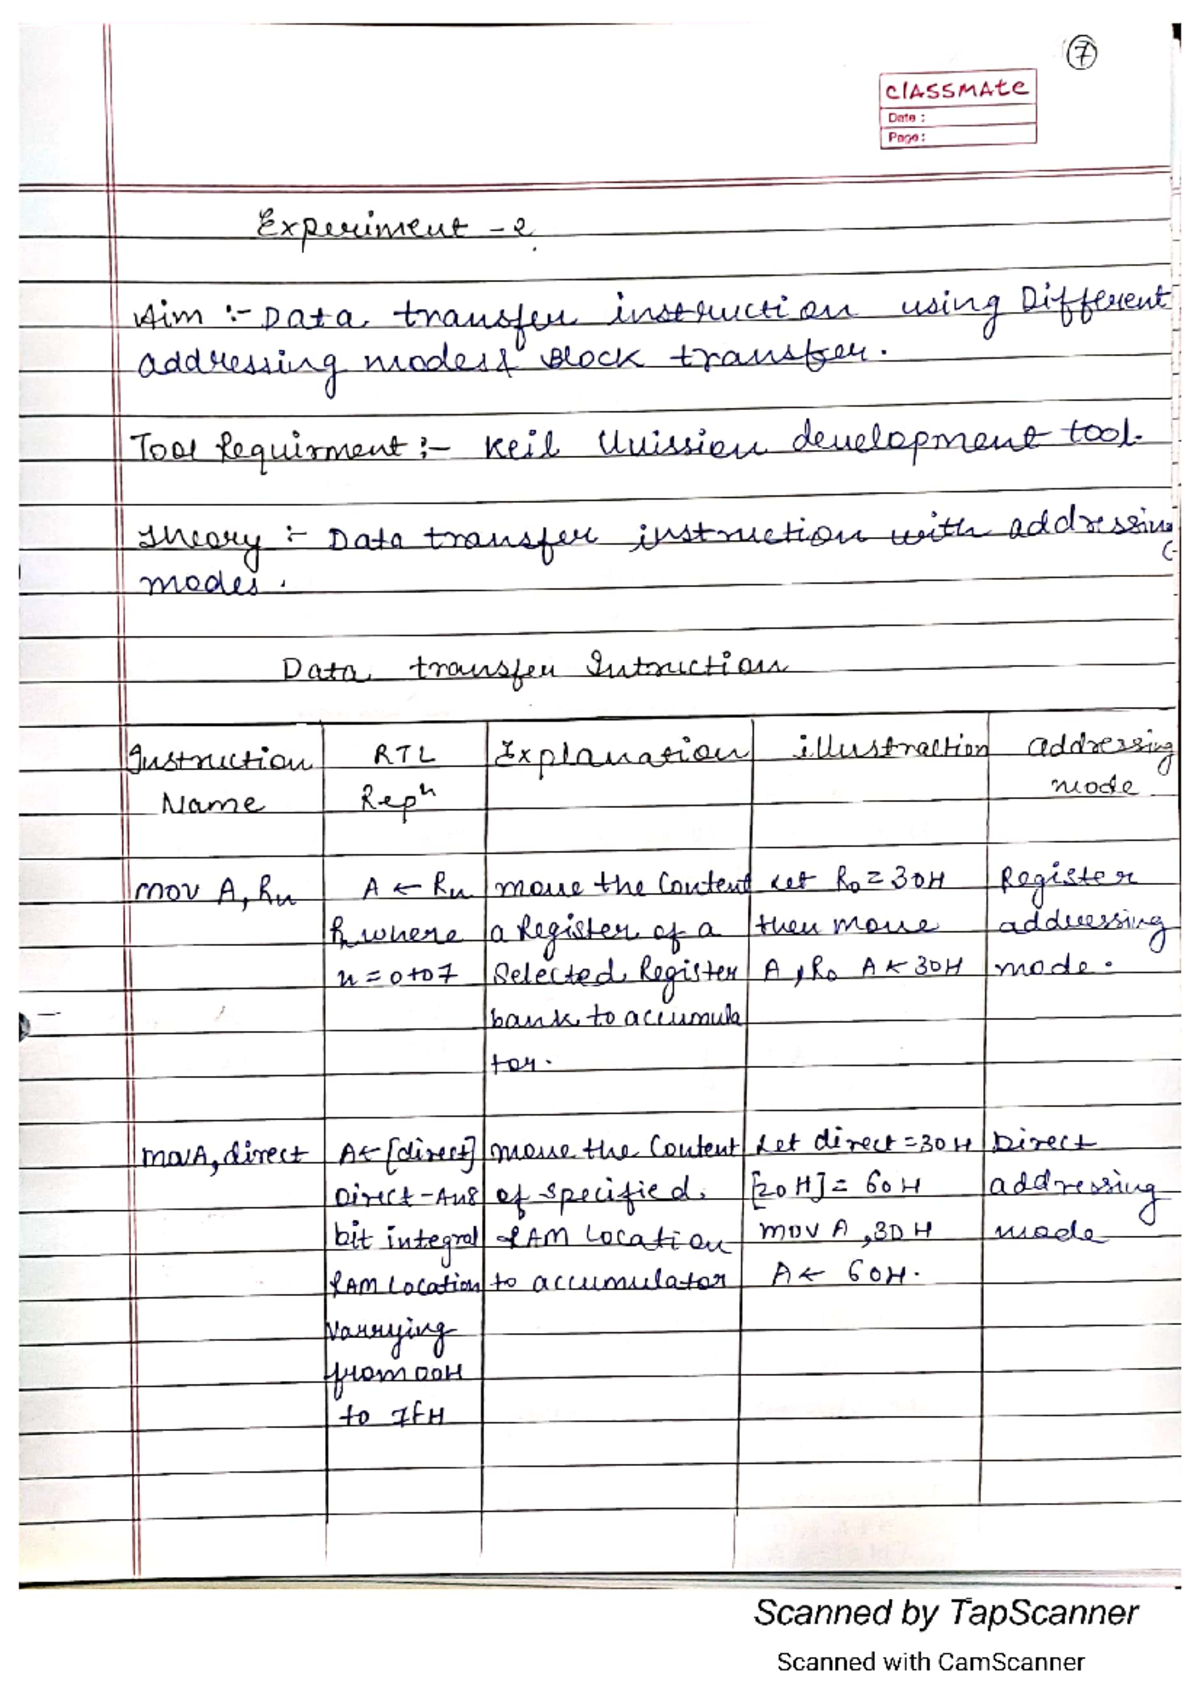 7
CLASSMATE
Date :
Page :
Experiment - 2.
Aim :- Data transfer instruction using Different
addressing modes & Block transfer.
Tool Requirment :- Keil Uvission development tool.
Theory :- Data transfer instruction with addressing
modes.
Data transfer Intruction
Instruction RTL Explanation illustraction addressing
Name Repⁿ mode
mov A, Rn A ← Rn move the Content Let R0 = 30H Register
Rn where a Register of a then move addressing
n = 0 to 7 Selected Register A, R0 A ← 30H mode.
bank to accumula
tor.
mov A, direct A ← [direct] move the Content Let direct = 30H Direct
Direct - An 8 of specified [20H] = 60H addressing
bit integral RAM Location mov A, 30H mode
RAM Location to accumulator A ← 60H.
Varrying
from 00H
to 7fH
Scanned by TapScanner
Scanned with CamScanner